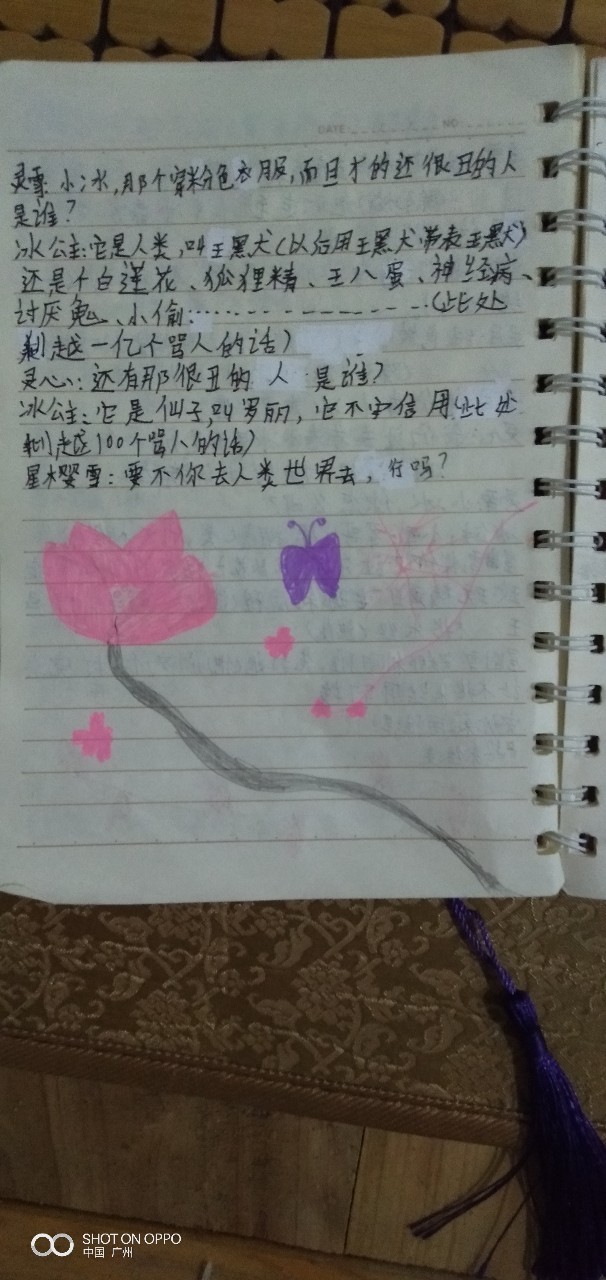 DATE: NO
灵雪:小冰,那个穿粉色衣服,而且才的还很丑的人
是谁?
冰公主:它是人类,叫王黑犬(以后用王黑犬带表王默)
还是个白莲花、狐狸精、王八蛋、神经病、
讨厌鬼、小偷……………………(此处
剩越一亿个骂人的话)
灵心:还有那很丑的 人 是谁?
冰公主:它是仙子,叫罗丽,它不守信用(此处
剩越100个骂人的话)
星樱雪:要不你去人类世界去,行吗?
SHOT ON OPPO
中国 广州